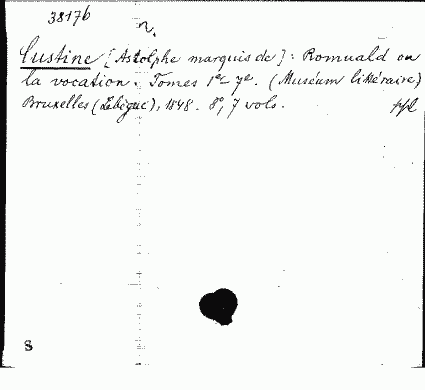 38176
n.
Custine [Astolphe marquis de]: Romuald ou
la vocation. Tomes 1er - 7e. (Muséum littéraire)
Bruxelles (Lebègue), 1848. 8°, 7 vols.
S